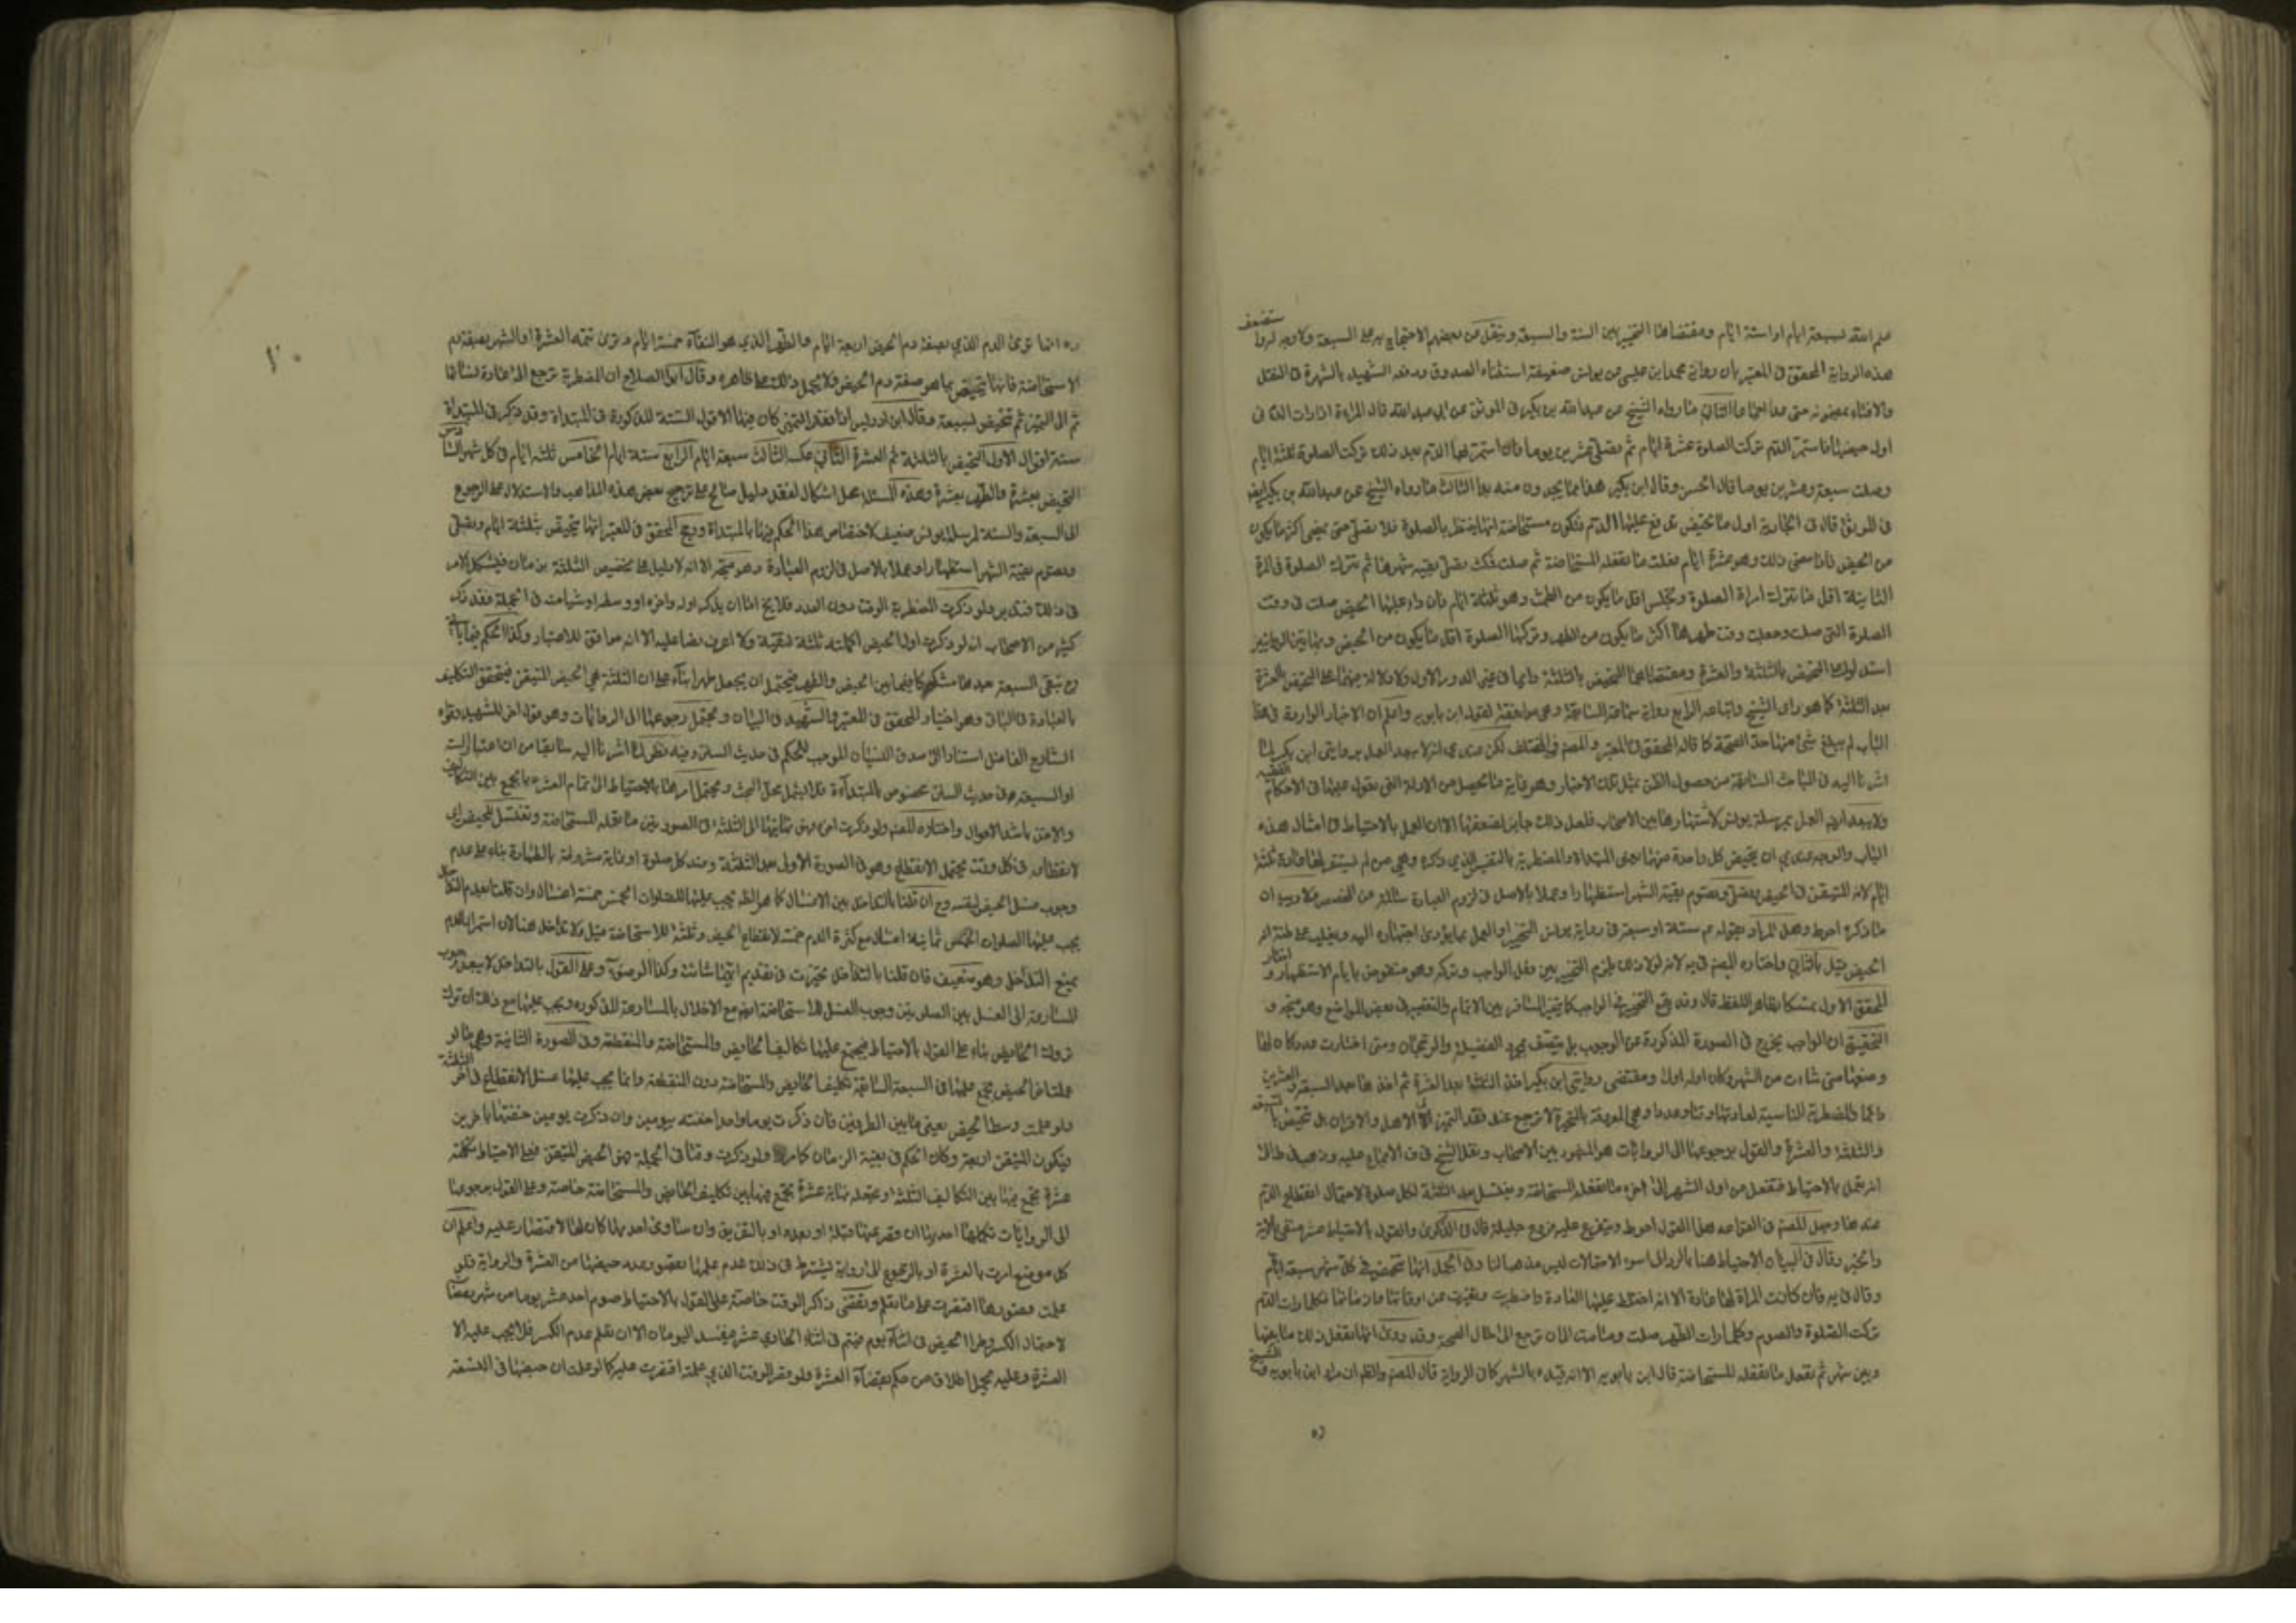 علم الله سبعة ايام او ستة ايام ومقتضاها التخيير بين الستة والسبعة وينقل عن بعضهم الاحتجاج به على السبعة ولا وجه له
هذه الرواية المحقق في المعتبر بان رواية محمد ابن عيسى عن يونس ضعيفة استثناه الصدوق ودفعه الشهيد بالشهرة في النقل
والافتاء بمضمونه حتى الثاني ما رواه الشيخ عن عبد الله بن بكير في الموثق عن ابي عبد الله قال المراة اذا رات الدم في
اول حيضها فاستمر الدم تركت الصلوة عشرة ايام ثم تصلي عشرين يوما فان استمر بها الدم بعد ذلك تركت الصلوة ثلثة ايام
وصلت سبعة وعشرين يوما قال الحسن وقال ابن بكير هذا مما يجدون منه بدا الثالث ما رواه الشيخ عن عبد الله بن بكير ايضا
في الموثق قال في الجارية اول ما تحيض تدفع عليها الدم فتكون مستحاضة انها تنتظر بالصلوة فلا تصلي حتى يمضي اكثر ما يكون
من الحيض فاذا مضى ذلك وهو عشرة ايام فعلت ما تفعله المستحاضة ثم صلت فمكثت تصلي بقية شهرها ثم تترك الصلوة في المرة
الثانية اقل ما تترك امراة الصلوة وتجلس اقل ما يكون من الطمث وهو ثلثة ايام فان دام عليها الحيض صلت في وقت
الصلوة التي صلت وجعلت وقت طهرها اكثر ما يكون من الطهر وتركها الصلوة اقل ما يكون من الحيض
استدلوا على التحيض بالثلثة والعشرة ومقتضاهما التحيض بالثلثة دائما في غير الدور الاول ولا دلالة فيهما على التحيض بالعشرة
بعد الثلثة كما هو راي الشيخ واتباعه الرابع رواية سماعة السابقة وهي موافقة لقول ابن بابويه واعلم ان الاخبار الواردة في هذا
الباب لم يبلغ شيء منها حد الصحة كما قاله المحقق في المعتبر والمصنف في المختلف لكن عندي انه لا يبعد العمل بروايتي ابن بكير لما
اشرنا اليه في المباحث السابقة من حصول الظن بمثل تلك الاخبار وهو غاية ما تحصل من الادلة التي يعول عليها في الاحكام الفقهية
ولا يبعد ايضا العمل بمرسلة يونس لاشتهارها بين الاصحاب فلعل ذلك جابر لضعفها الا ان العمل بالاحتياط في امثال هذه
ايام لانه المتيقن في الحيض وتصلي وتصوم بقية الشهر استظهارا وعملا بالاصل في لزوم العبادة
ما ذكره احوط وهل المراد بقوله ع ستة او سبعة في رواية يونس التخيير او العمل بما يؤدي اجتهادها اليه ويغلب على ظنها انه
الحيض قيل بالثاني واختاره المصنف في يه لانه لولا ذلك يلزم التخيير بين فعل الواجب وتركه وهو منقوض بايام الاستظهار واختار
المحقق الاول تمسكا بظاهر اللفظ قال وقد يقع التخيير في الواجب كما يتخير المسافر بين الاتمام والتقصير في بعض المواضع وهو متجه و
التحقيق ان الواجب يخرج في الصورة المذكورة عن الوجوب بل يتصف بمجرد الفضيلة والرجحان ومتى اختارت عددا كان لها
وضعها متى شاءت من الشهر وكان اوله اولى ومقتضى روايتي ابن بكير اخذ الثلثة بعد العشرة ثم اخذها بعد السبعة والعشرين
دائما والمضطربة الناسية لعادتها وقتا وعددا وهي المعروفة بالمتحيرة لا ترجع عند فقد التميز الى الاهل والاقران بل تتحيض بالسبعة
والثلثة والعشرة والقول برجوعها الى الروايات هو المشهور بين الاصحاب ونقل الشيخ في ف الاجماع عليه وذهب في ط الى
انها تعمل بالاحتياط فتفعل من اول الشهر الى اخره ما تفعله المستحاضة وتغتسل بعد الثلثة لكل صلوة لاحتمال انقطاع الدم
عندها وجعل المصنف في القواعد هذا القول احوط ويتفرع عليه فروع جليلة قال في الذكرى والقول بالاحتياط عسر منفي بالاية
والخبر وقال في البيان الاحتياط هنا بالرد الى اسوء الاحتمالات ليس مذهبا لنا وفي الجمل انها تتحيض في كل شهر سبعة ايام
وقال في يه فان كانت المراة لها عادة الا انه اختلط عليها العادة واضطربت وتغيرت عن اوقاتها وازمانها فكلما رات الدم
تركت الصلوة والصوم وكلما رات الطهر صلت وصامت الى ان ترجع الى حال الصحة وقد روي انها تفعل ذلك ما بينها
وبين شهر ثم تفعل ما تفعله المستحاضة قال ابن بابويه الا انه قيده بالشهر كما في الرواية قال المصنف والظاهر ان مراد ابن بابويه والشيخ
ره
ره انما ترى الدم الذي بصفة دم الحيض اربعة ايام والطهر الذي هو النقاء خمسة ايام وترى تتمة العشرة او الشهر بصفة دم
الاستحاضة فانها تتحيض بما هو صفة دم الحيض ولا يحمل ذلك على ظاهره وقال ابو الصلاح ان المضطربة ترجع الى عادة نسائها
ثم الى التميز ثم تتحيض بسبعة وقال ابن ادريس اذا فقد التميز كان فيها الاقوال الستة المذكورة في المبتداة وقد ذكر في المبتداة
ستة اقوال الاول التحيض بالثلثة ثم العشرة الثاني عكسه الثالث سبعة ايام الرابع ستة ايام الخامس ثلثة ايام في كل شهر السادس
التحيض بعشرة والطهر بعشرة وهذه المسئلة محل اشكال لفقد دليل صالح على ترجيح بعض هذه المذاهب والاستدلال على الرجوع
الى السبعة والستة لمرسلة يونس ضعيف لاختصاص هذا الحكم فيها بالمبتداة ورجح المحقق في المعتبر انها تتحيض بثلثة ايام وتصلي
وتصوم بقية الشهر استظهارا وعملا بالاصل في لزوم العبادة وهو متجه الا انه لا دليل على تخصيص الثلثة بزمان فيشكل الامر
في ذلك فتدبر ولو ذكرت المضطربة الوقت دون العدد فلا يخ اما ان يذكر اوله واخره او وسطه او شيئا منه في الجملة فقد ذكر
كثير من الاصحاب انه لو ذكرت اول الحيض اكملته ثلثة لتيقنه ولا اعرف نصا عليه الا انه موافق للاعتبار وكذا الحكم فيما ياتي
وح تبقى السبعة بعدها مشكوكا فيها بين الحيض والطهر فيحتمل ان يجعل طهرا بناء على ان الثلثة هي الحيض المتيقن فيتحقق التكليف
بالعبادة في الباقي وهو اختيار المحقق في المعتبر والشهيد في البيان ويحتمل رجوعها الى الروايات وهو قول اخر للشهيد وقواه
الشارح الفاضل استنادا الى صدق النسيان الموجب للحكم في حديث السنن وفيه نظر لما اشرنا اليه سابقا من ان اعتبار الستة
او السبعة في حديث السنن مخصوص بالمبتداة فلا يشمل محل البحث ويحتمل امرها بالاحتياط الى تمام العشرة بالجمع بين التكاليف
والاخذ باشد الاحوال واختاره المصنف ولو ذكرت اخره نهايتها الى الثلثة في الصورتين ما تفعله المستحاضة وتغتسل للحيض اي
لانقطاعه في كل وقت يحتمل الانقطاع وهو في الصورة الاولى بعد الثلثة وعند كل صلوة او غاية مشروطة بالطهارة بناء على عدم
وجوب غسل الحيض لنفسه وح ان قلنا بالتداخل بين الاغسال كما هو الظاهر يجب عليها للصلوات الخمس خمسة اغسال وان قلنا بعدم التداخل
يجب عليها للصلوات الخمس ثمانية اغسال مع كثرة الدم خمسة لانقطاع الحيض وثلثة للاستحاضة قيل ولا تداخل هنا لان استمرار الدم
يمنع التداخل وهو ضعيف فان قلنا بالتداخل تخيرت في تقديم ايها شاءت وكذا الوضوء وعلى القول بالتداخل لا يبعد وجوب
المسارعة الى الغسل بين الصلوتين وجوب الغسل للاستحاضة ايضا مع الاخلال بالمسارعة المذكورة ويجب عليها مع ذلك ان تترك
تروك الحائض بناء على القول بالاحتياط فيجتمع عليها تكاليف الحائض والمستحاضة والمنقطعة وفي الصورة الثانية وهي ما لو
علمت اخر الحيض تجمع عليها في السبعة السابقة تكليف الحائض والمستحاضة دون المنقطعة وانما يجب عليها غسل الانقطاع في اخر الثلثة
ولو علمت وسط الحيض يعني ما بين الطرفين فان ذكرت يوما واحدا حفته بيومين وان ذكرت يومين حفتهما باخرين
فيكون المتيقن اربعة وكان الحكم في بقية الزمان كما مر ولو ذكرت وقتا في الجملة فهو الحيض المتيقن فعلى الاحتياط تكمله
عشرة تجمع فيها بين التكاليف الثلثة او تجعله نهاية عشرة تجمع فيها بين تكليف الحائض والمستحاضة خاصة وعلى القول برجوعها
الى الروايات تكملها احديها ان قصر عنها قبله او بعده او بالتفريق وان ساوى احديها كان لها الاقتصار عليه واعلم ان
كل موضع امرت بالعشرة او بالرجوع الى الرواية يشترط في ذلك عدم علمها بقصور عدد حيضها من العشرة والرواية فلو
علمت قصورها اقتصرت على ما تعلم وتقضي ذاكر الوقت خاصة على القول بالاحتياط صوم احد عشر يوما من شهر رمضان
لاحتمال الكسر وطرا الحيض في اثناء يوم فيتم في اثناء الحادي عشر فيفسد اليومان الا ان تعلم عدم الكسر فلا يجب عليها الا
العشرة وعليه يحمل اطلاق من حكم بقضاء العشرة ولو قصر الوقت الذي علمته اقتصرت عليه كما لو علمت ان حيضها في التسعة